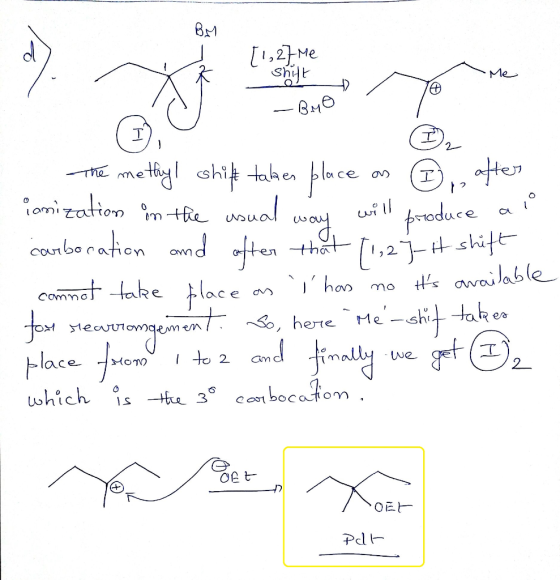 d).
Br
1
2
[1,2]-Me
shift
– Br⊖
Me
⊕
I 1
I 2
The methyl shift takes place on I 1, after
ionization in the usual way will produce a 1°
carbocation and after that [1,2]-H shift
cannot take place as '1' has no H's available
for rearrangement. So, here 'Me'-shif takes
place from 1 to 2 and finally we get I 2
which is the 3° carbocation.
⊕
⊖OEt
OEt
Pdt